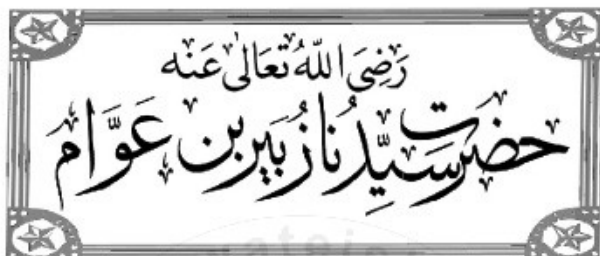 رَضِیَ اللّٰہُ تَعَالٰی عَنہ
حضرت سَیِّدُنا زُبَیر بن عَوَّام